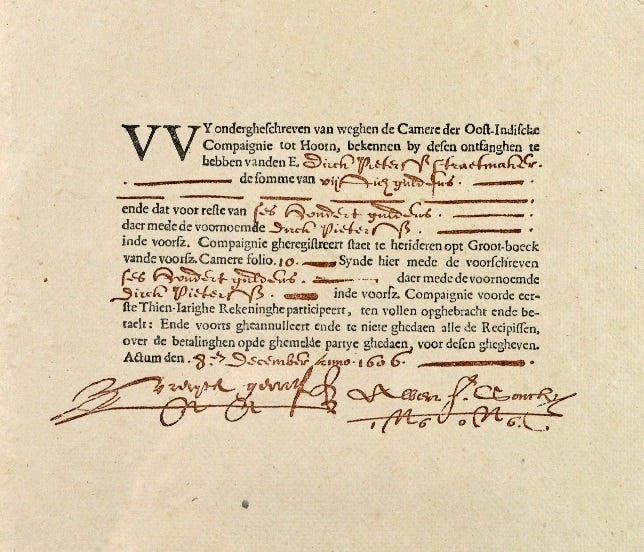 VVY ondergheschreven van weghen de Camere der Oost-Indische
Compaignie tot Hoorn, bekennen by desen ontfanghen te
hebben vanden E. Dirck Pieters straetmaker.
de somme van vijftich guldens.
ende dat voor reste van ses hondert guldens.
daer mede de voornoemde Dirck Pieters
inde voorsz. Compaignie gheregistreert staet te
vande voorsz. Camere folio. 10. Synde hier mede de voorschreven
ses hondert guldens. daer mede de voornoemde
Dirck Pieters inde voorsz. Compaignie voorde eer-
ste Thien-Iarighe Rekeninghe participeert, ten vollen opghebracht ende be-
taelt: Ende voorts gheannulleert ende te niete ghedaen alle de Recipissen,
over de betalinghen opde ghemelde partye ghedaen, voor desen ghegheven.
Actum den. 8. December Anno. 1606.